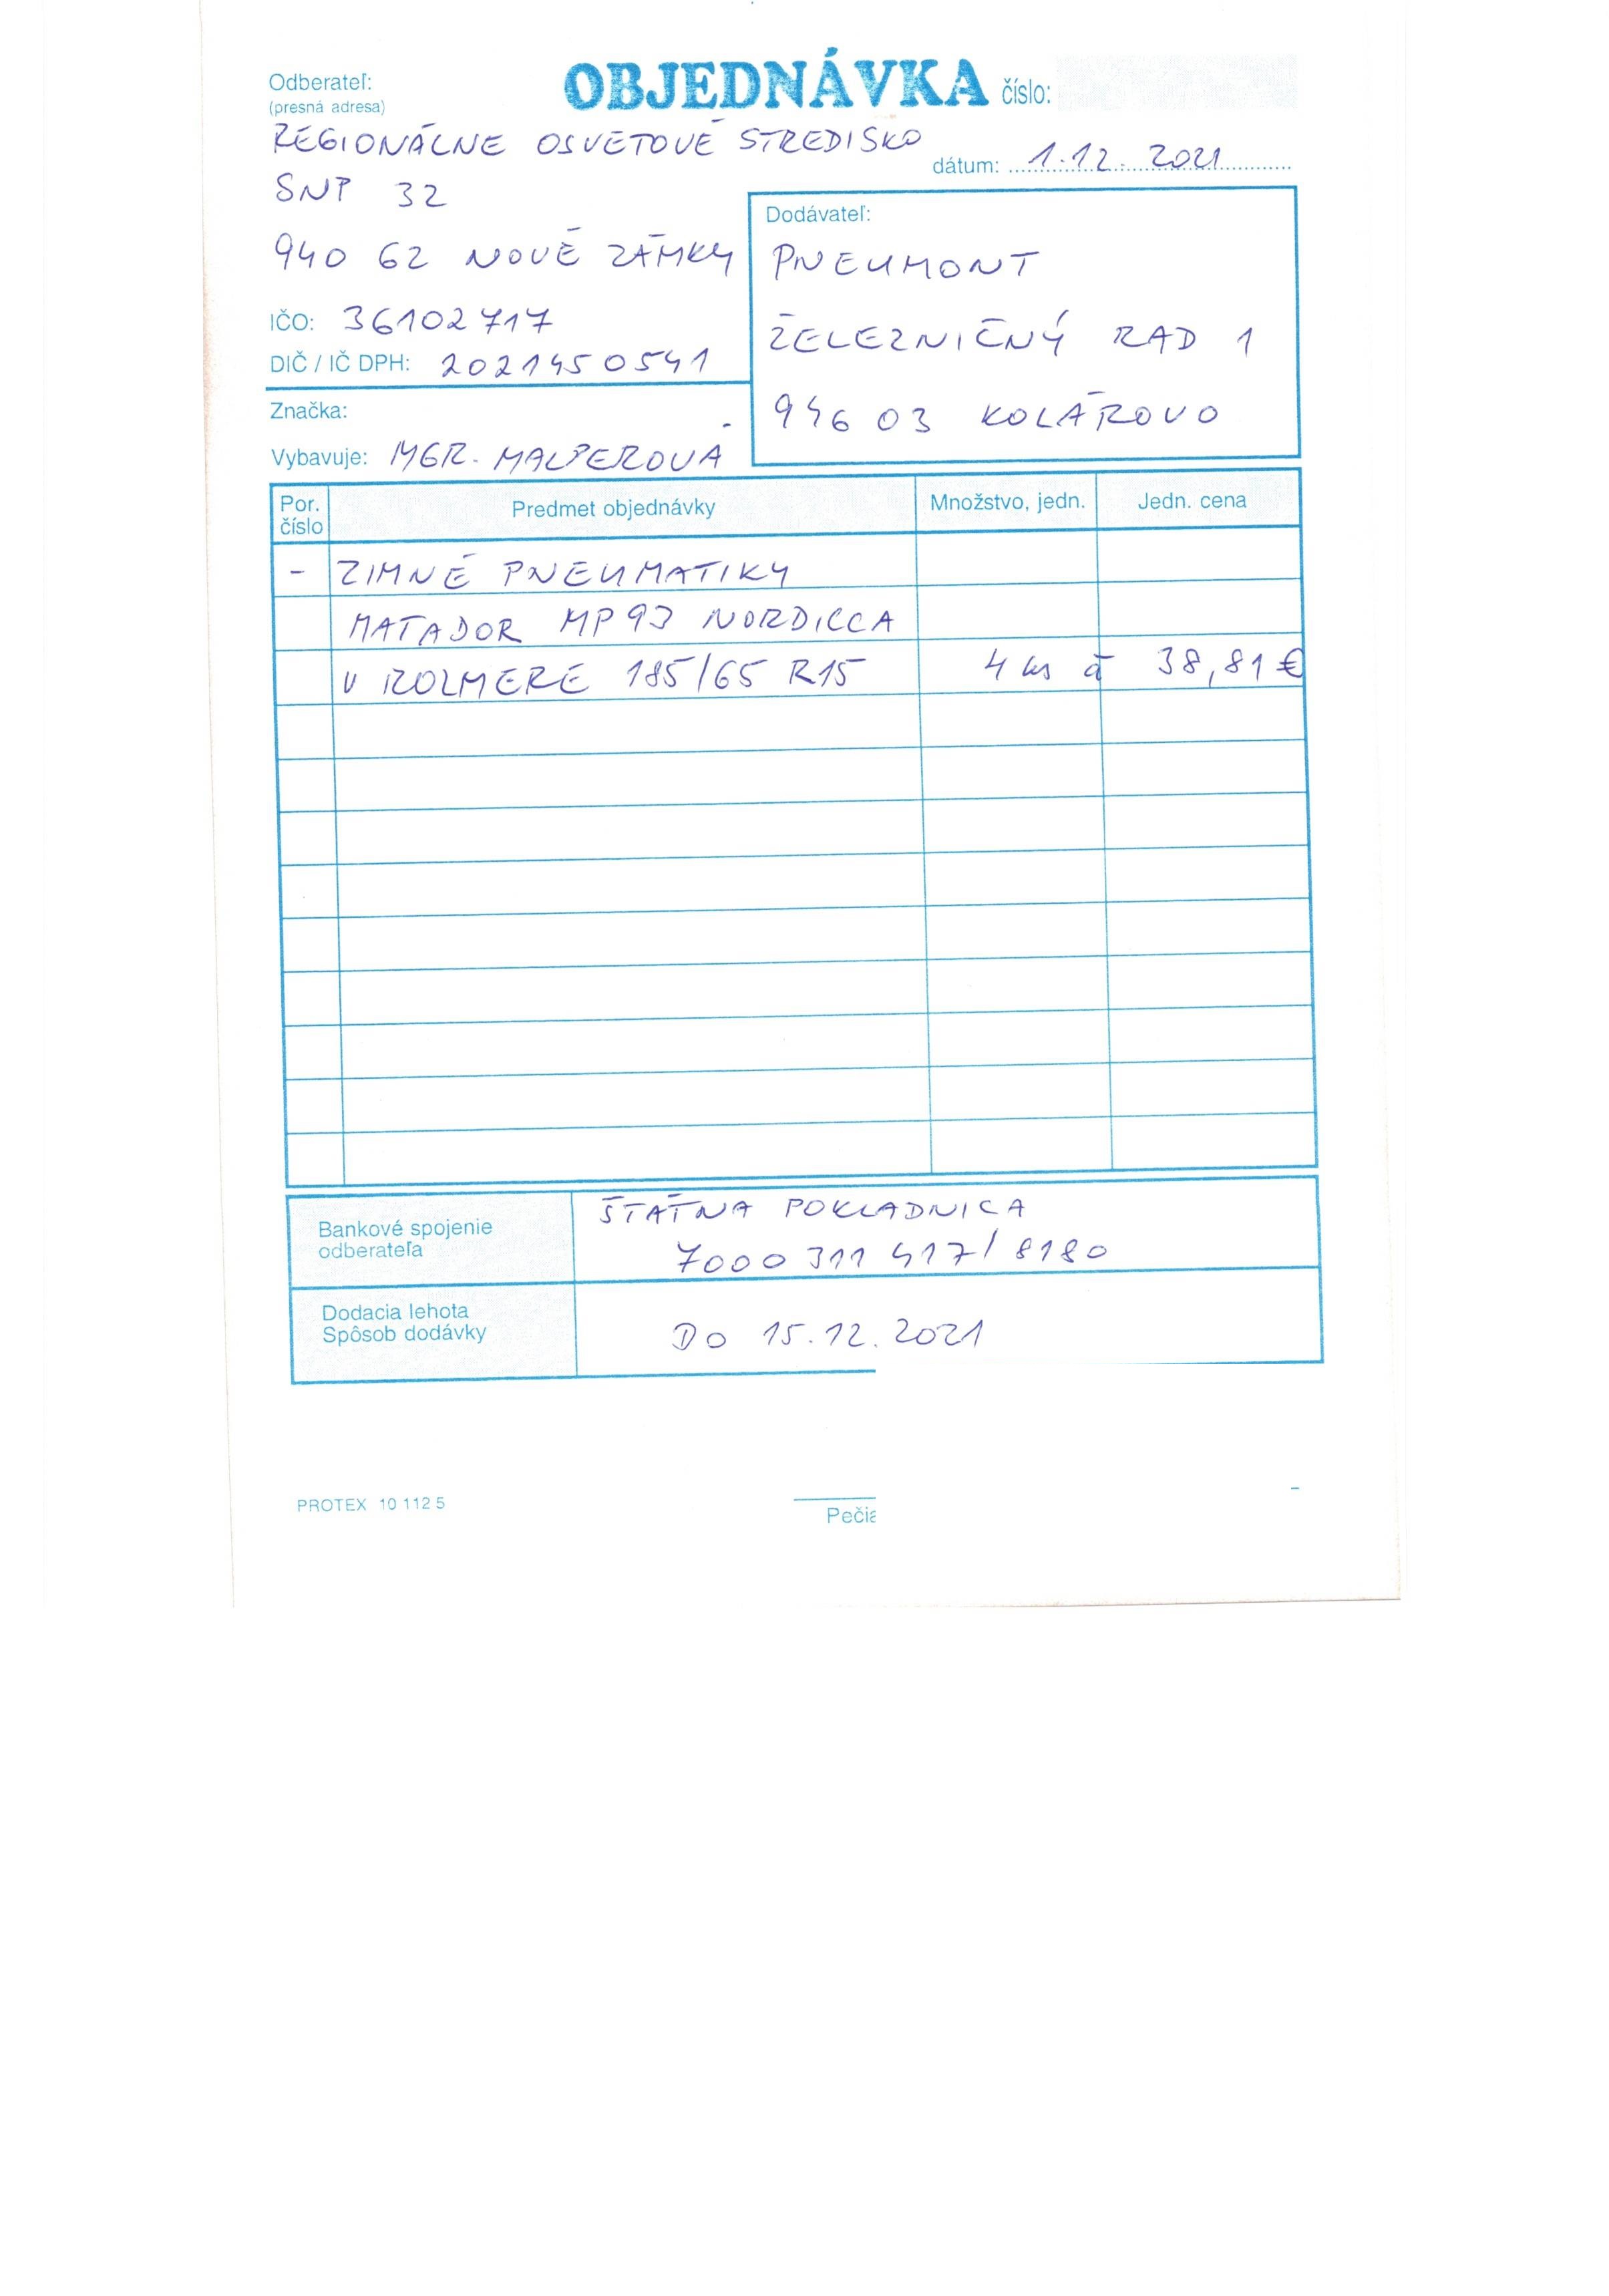 Odberateľ:
(presná adresa)
OBJEDNÁVKA číslo:
REGIONÁLNE OSVETOVÉ STREDISKO
dátum: 1.12. 2021
SNP 32
940 62 NOVÉ ZÁMKY
IČO: 36102717
DIČ / IČ DPH: 2021450541
Značka:
Vybavuje: MGR. MALPEROVÁ
Dodávateľ:
PNEUMONT
ŽELEZNIČNÝ RAD 1
946 03 KOLÁROVO
Por. číslo Predmet objednávky Množstvo, jedn. Jedn. cena
- ZIMNÉ PNEUMATIKY
MATADOR MP93 NORDICCA
V ROZMERE 185/65 R15 4 ks á 38,81 €
Bankové spojenie
odberateľa
ŠTÁTNA POKLADNICA
7000 311 417/8180
Dodacia lehota
Spôsob dodávky
DO 15.12.2021
PROTEX 10 112 5